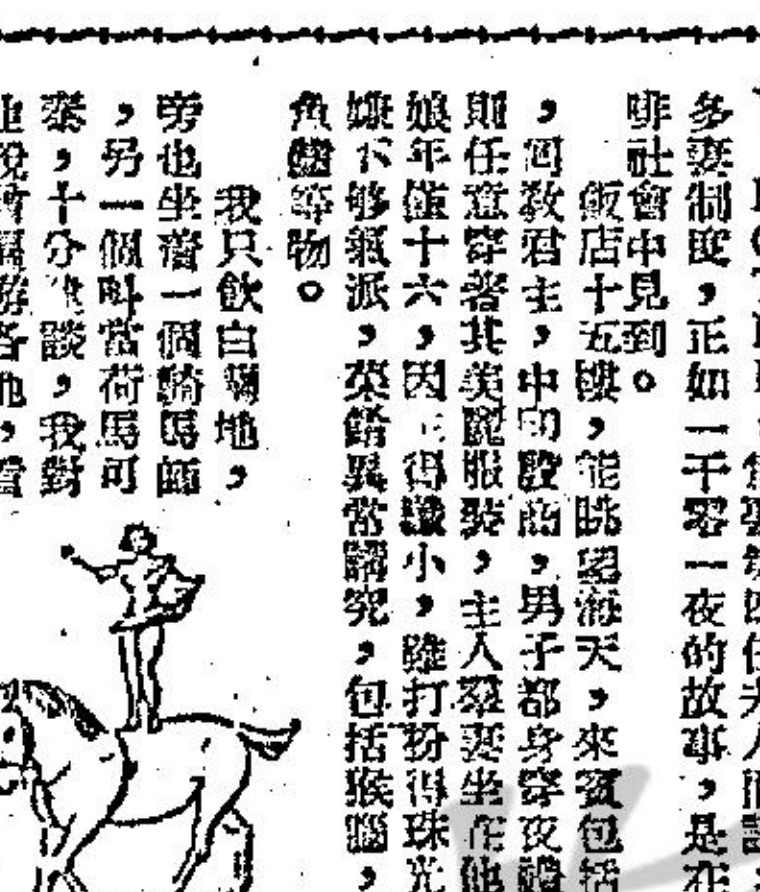 多妻制度，正如一千零一夜的故事，是在
啡社會中見到。
飯店十五樓，能眺望海天，來賓包括
，回教君主，中印殷商，男子都身穿夜禮
則任意穿著其美麗服裝，主人翠妻坐在他
娘年僅十六，因 得纖小，雖打扮得珠光
嫌下够氣派，菜餚異常講究，包括猴腦，
魚 等物。
我只飲白蘭地，
旁也坐着一個騎馬師
，另一個叫當荷馬可
泰，十分健談，我對